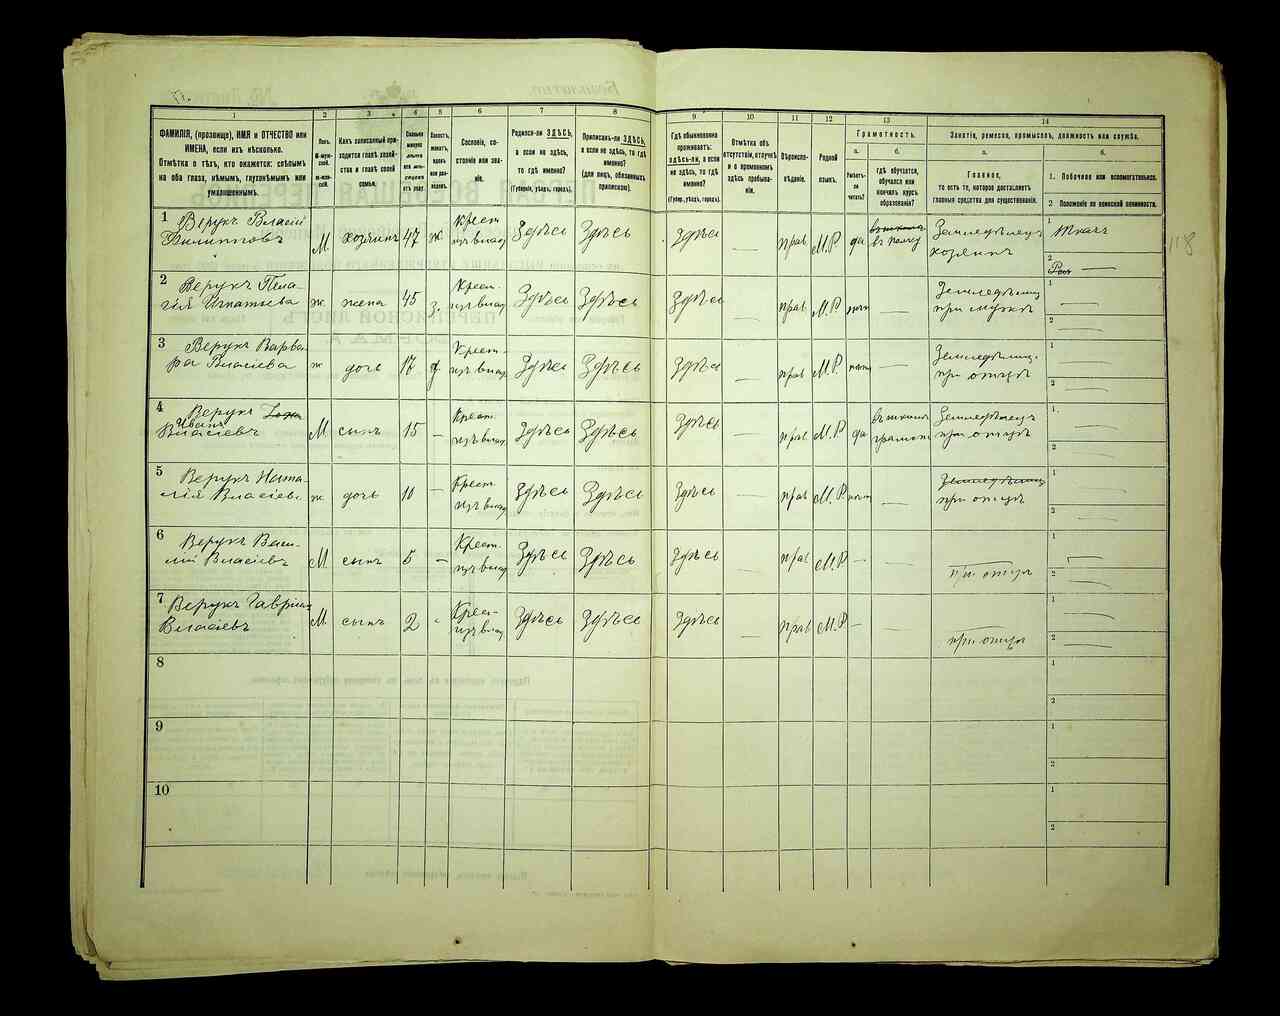 1 2 3 4 5 6 7 8 9 10 11 12 13 14
ФАМИЛІЯ, (прозвище), ИМЯ и ОТЧЕСТВО или ИМЕНА, если ихъ нѣсколько.
Отмѣтка о тѣхъ, кто окажется: слѣпымъ на оба глаза, нѣмымъ, глухонѣмымъ или умалишеннымъ.
Полъ.
М-мужской.
Ж-женскій.
Сословіе, состояніе или званіе.
Родился-ли ЗДѢСЬ,
а если не здѣсь,
то гдѣ именно?
(Губернія, уѣздъ, городъ).
Приписанъ-ли ЗДѢСЬ,
а если не здѣсь, то гдѣ
именно?
(для лицъ, обязанныхъ
припискою).
Гдѣ обыкновенно
проживаетъ:
здѣсь-ли, а если
не здѣсь, то гдѣ
именно?
(Губер., уѣздъ, городъ).
Отмѣтка объ
отсутствіи, отлучкѣ
и о временномъ
здѣсь пребываніи.
Вѣроисповѣданіе.
Родной
языкъ.
Грамотность.
а. б.
Умѣетъ-ли
читать?
гдѣ обучается,
обучался или
кончилъ курсъ
образованія?
Занятіе, ремесло, промыселъ, должность или служба.
а. б.
Главное,
то есть то, которое доставляетъ
главныя средства для существованія.
1. Побочное или вспомогательное.
2 Положеніе по воинской повинности.
1 Верукъ Власій
Филипповъ М хозяинъ 47 ж Крест. Здѣсь Здѣсь Здѣсь — прав М.Р да Земледѣлецъ
хозяинъ
1 Ткачъ
2 —
2 Верукъ Пелагія Игнатьева ж жена 45 з. Крест. Здѣсь Здѣсь Здѣсь — прав М.Р —
при мужѣ
1 —
2 —
3 Верукъ Варвара Власіева ж дочь 17 Крест. Здѣсь Здѣсь Здѣсь — прав М.Р —
при отцѣ
1 —
2 —
4 Верукъ
Иванъ
Власіевъ М сынъ 15 — Крест. Здѣсь Здѣсь Здѣсь — прав М.Р да Земледѣлецъ
при отцѣ
1 —
2 —
5 Верукъ Наталія Власіева ж дочь 10 — Крест. Здѣсь Здѣсь Здѣсь — прав М.Р —
при отцѣ
1 —
2 —
6 Верукъ Василій Власіевъ М сынъ 5 — Крест. Здѣсь Здѣсь Здѣсь — прав М.Р — —
при отцѣ
1 —
2 —
7 Верукъ Гавріилъ
Власіевъ М сынъ 2 - Крест. Здѣсь Здѣсь Здѣсь — прав М.Р — —
при отцѣ
1 —
2 —
8 1
2
9 1
2
10 1
2
118